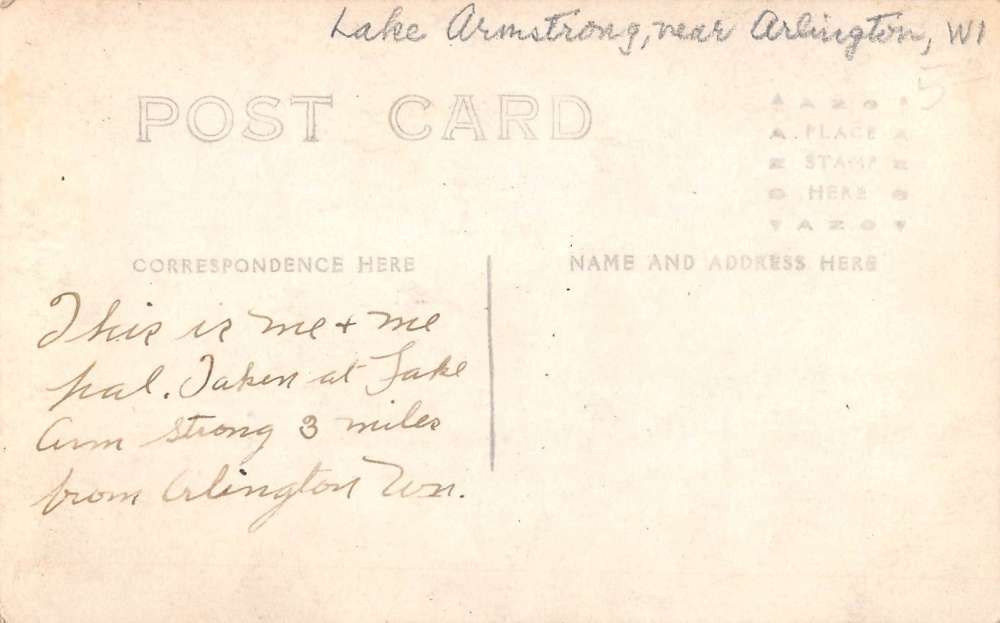 Lake Armstrong, near Arlington, WI
5
POST CARD
AZO
PLACE
STAMP
HERE
AZO
CORRESPONDENCE HERE
NAME AND ADDRESS HERE
This is me + me
pal. Taken at Lake
Arm strong 3 miles
from Arlington Wn.